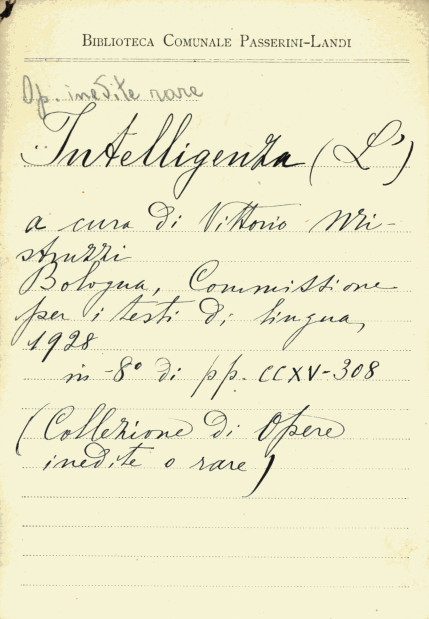 BIBLIOTECA COMUNALE PASSERINI-LANDI
Op. inedite rare
Intelligenza (L')
a cura di Vittorio Mi-
struzzi
Bologna, Commissione
per i testi di lingua,
1928
in-8° di pp. CCXV-308
(Collezione di Opere
inedite o rare)